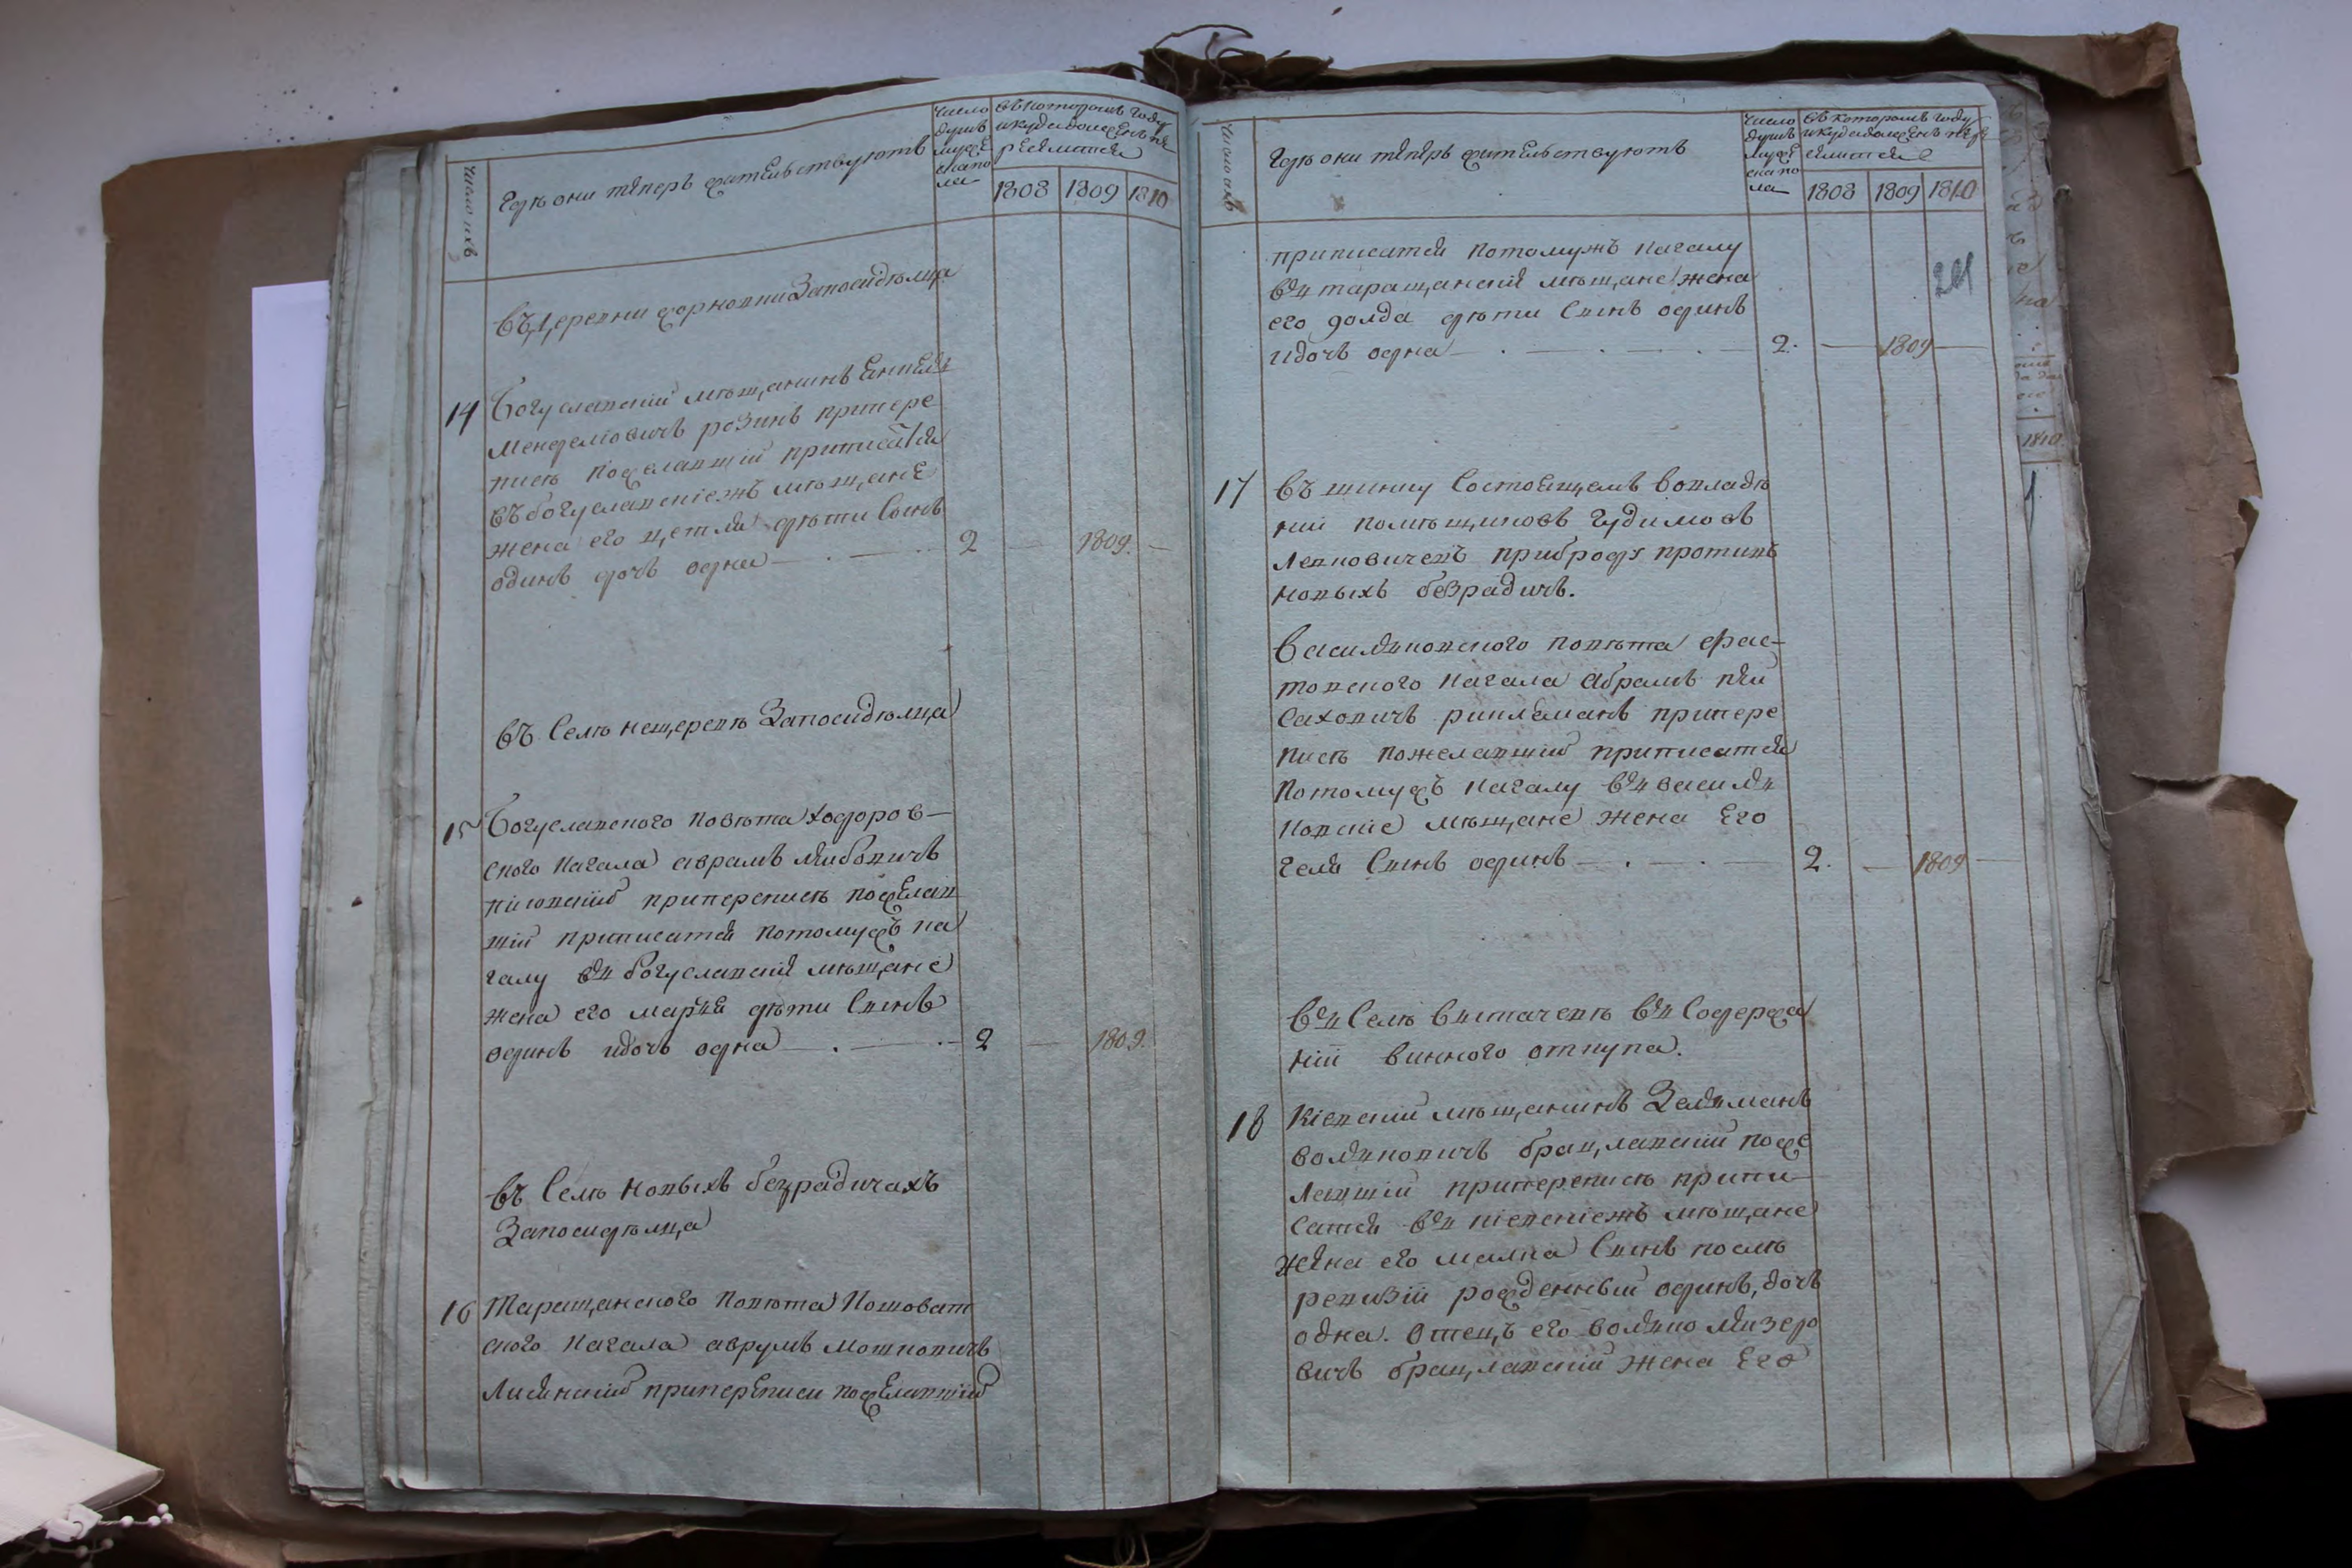 число ихъ
где они теперь жительствуютъ
число
душъ
муже
скапо
ла
въкоторомъ году
икуда должєнъ пе
рєелится
1808 1809 1810
въ деревни жорновки Запосидѣлца
14 Богуславский мѣщанинъ
менделіовичъ розинъ припере
писѣ пожелавший приписатся
въ богуславскіежъ мѣщане
жена его цетля дѣти Сынъ
одинъ дочъ одна 2 1809.
въ Селѣ нещеревѣ Запосидѣлца
15 Богуславского повѣта ходоров-
ского кагала аврамъ лейбовичъ
припереписѣ пожелав
ший приписатся потомужъ ка
галу въ богуславский мѣщане
жена его марія дѣти Сынъ
одинъ идочъ одна 2 1809.
въ Селѣ новыхъ безрадичахъ
Запосидѣлца
16 Таращанского повѣта Кошоват
ского кагала аврумъ мошковичъ
Лисянский припереписи пожелавший
число ихъ
где они теперь жительствуютъ
число
душъ
муже
ска по
ла
въ которомъ году
икуда долженъ пере
елится
1808 1809 1810
приписатся потомужъ кагалу
въ таращанский мѣщане жена
его голда дѣти Сынъ одинъ
идочъ одна 2. 1809
241
17 въ шинку Состоящемъ вовладѣ
ний помѣщиковъ гудимовъ
Левковичевъ приброду противъ
новыхъ безрадичъ.
Васильковского повѣта фас-
товского кагала абрамъ пей
саховичъ припере
писѣ пожелавший приписатся
потомужъ кагалу въ василь
ковские мѣщане жена Его
геля Сынъ одинъ 2. 1809
въ Селѣ витачевѣ въ Содержа
ний винного откупа.
18 Киевский мѣщанинъ Зельманъ
волковичъ брацлавский поже
лавший припереписѣ припи
сатся въ киевскиежъ мѣщане
жена его малка Сынъ послѣ
ревизий рожденный одинъ, дочъ
одна. Отецъ его волько лейзеро
вичъ брацлавский жена Его